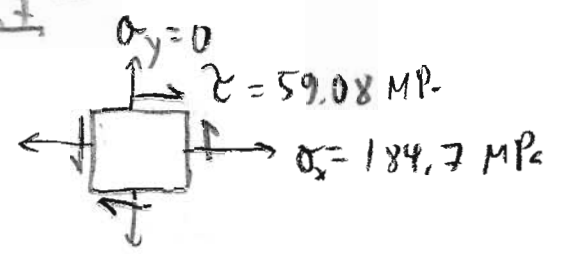 σy=0
τ = 59.08 MPa
σx= 184.7 MPa